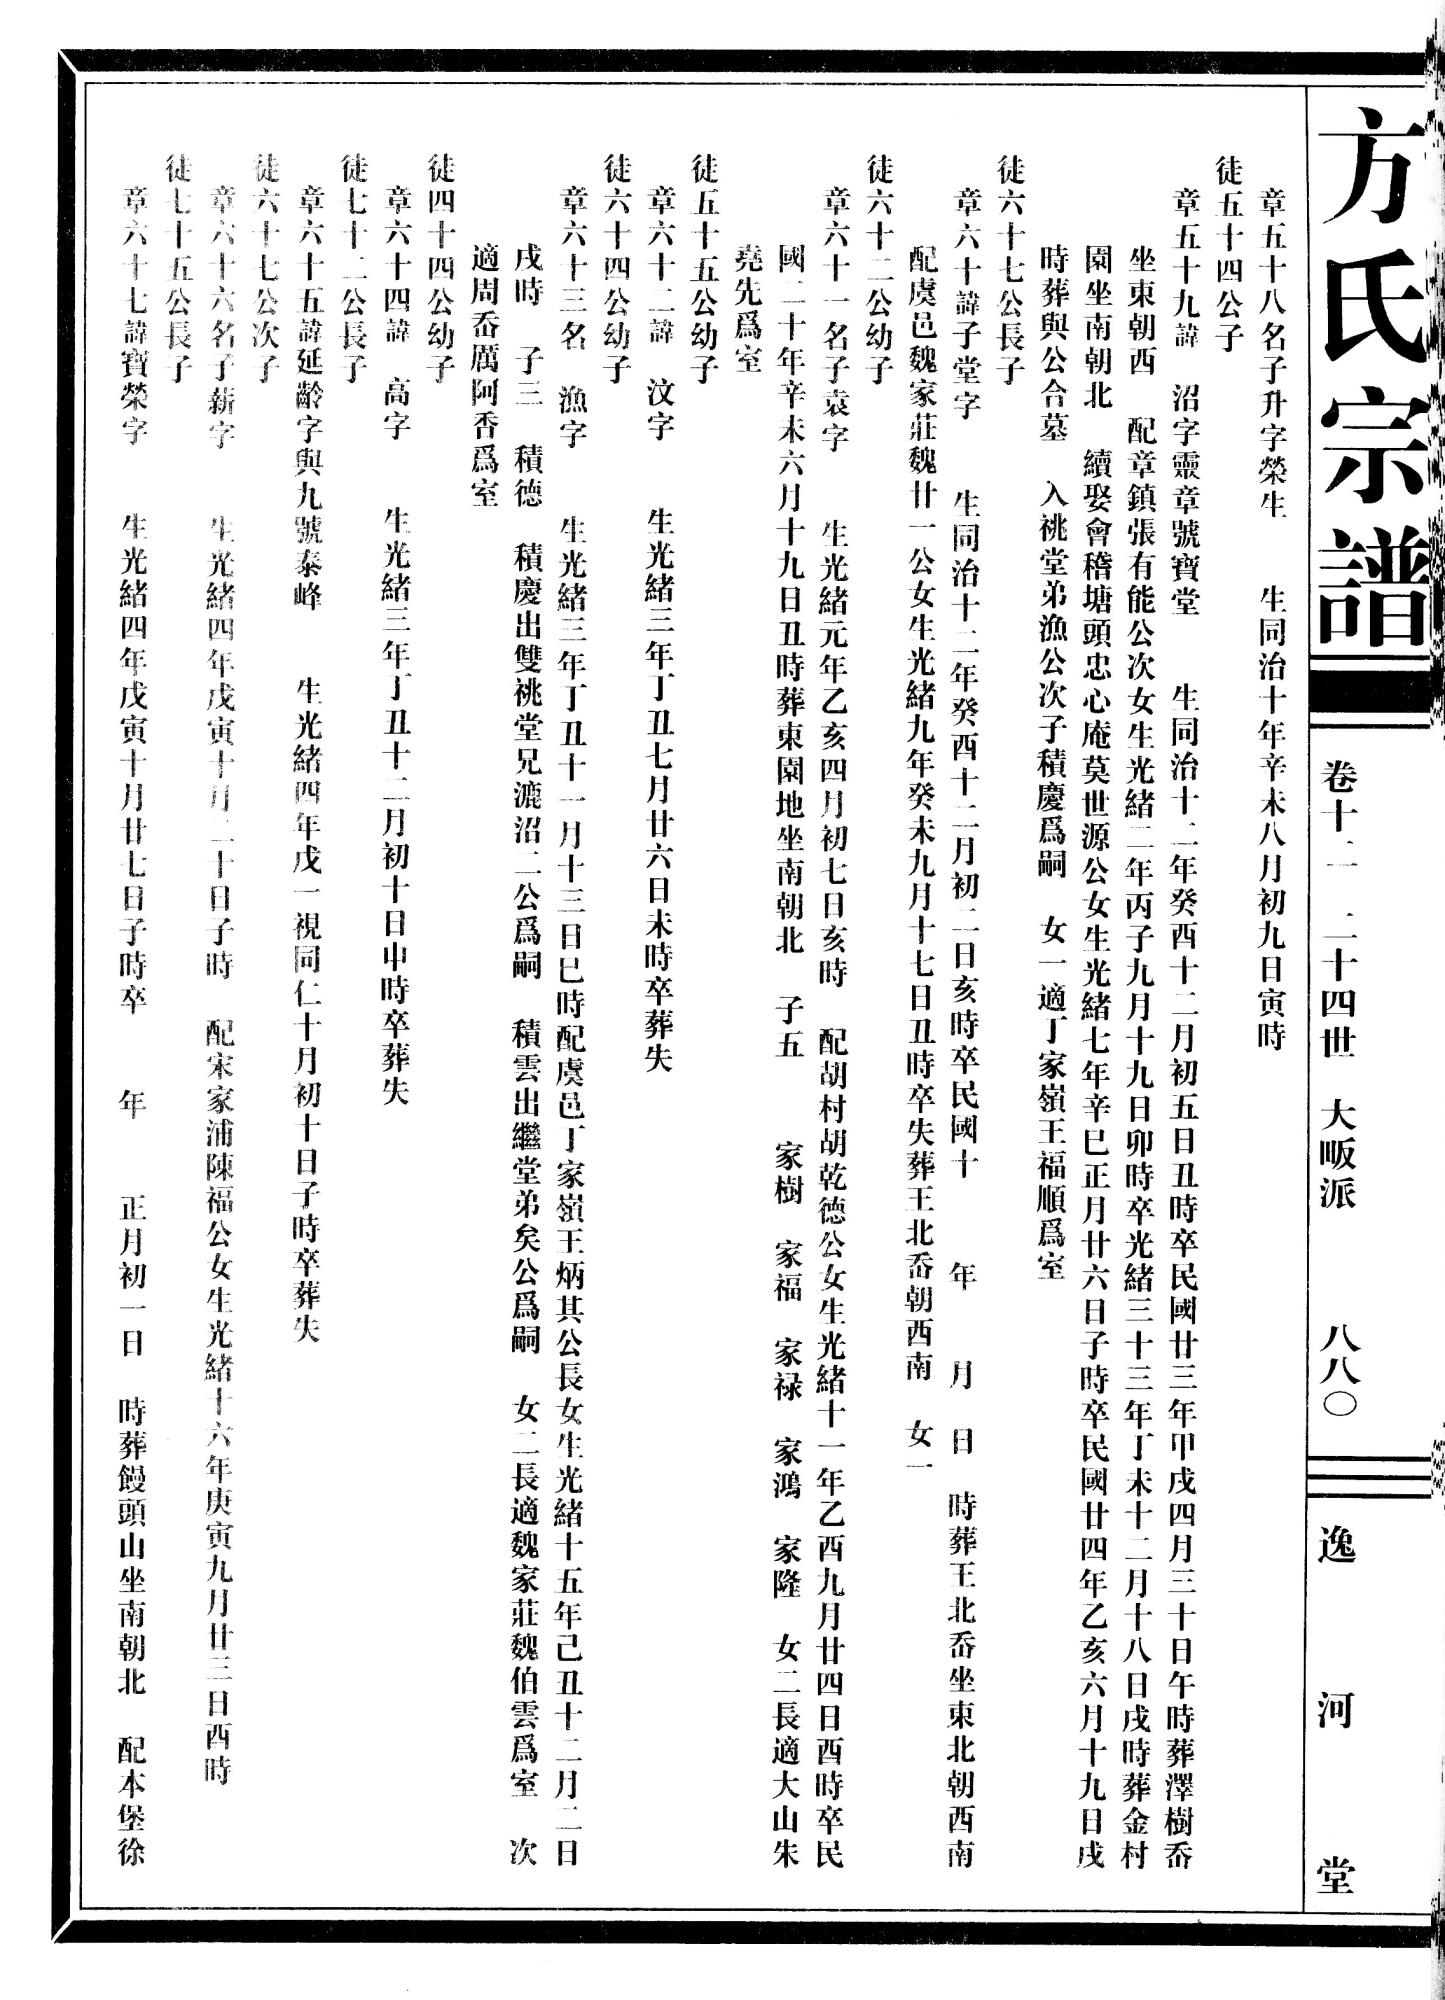 方氏宗譜
卷十二　二十四世　大畈派　八八〇
逸河堂
章五十八名子升字榮生　　生同治十年辛未八月初九日寅時
徒五十四公子
章五十九諱　沼字靈章號寶堂　　生同治十二年癸酉十二月初五日丑時卒民國廿三年甲戌四月三十日午時葬澤樹岙
坐東朝西　配章鎮張有能公次女生光緒二年丙子九月十九日卯時卒光緒三十三年丁未十二月十八日戌時葬金村
園坐南朝北　續娶會稽塘頭忠心庵莫世源公女生光緒七年辛巳正月廿六日子時卒民國廿四年乙亥六月十九日戌
時葬與公合墓　入祧堂弟漁公次子積慶爲嗣　女一適丁家嶺王福順爲室
徒六十七公長子
章六十諱子堂字　　生同治十二年癸酉十二月初二日亥時卒民國十　　年　　月　日　時葬王北岙坐東北朝西南
配虞邑魏家莊魏廿一公女生光緒九年癸未九月十七日丑時卒失葬王北岙朝西南　女一
徒六十二公幼子
章六十一名子袁字　　生光緒元年乙亥四月初七日亥時　配胡村胡乾德公女生光緒十一年乙酉九月廿四日酉時卒民
國二十年辛未六月十九日丑時葬東園地坐南朝北　子五　　家樹　家福　家禄　家鴻　家隆　女二長適大山朱
堯先爲室
徒五十五公幼子
章六十二諱　汶字　　生光緒三年丁丑七月廿六日未時卒葬失
徒六十四公幼子
章六十三名　漁字　　生光緒三年丁丑十一月十三日巳時配虞邑丁家嶺王炳其公長女生光緒十五年己丑十二月二日
戌時　子三　積德　積慶出雙祧堂兄漉沼二公爲嗣　積雲出繼堂弟矣公爲嗣　女二長適魏家莊魏伯雲爲室　次
適周岙厲阿香爲室
徒四十四公幼子
章六十四諱　高字　　生光緒三年丁丑十二月初十日申時卒葬失
徒七十二公長子
章六十五諱延齡字與九號泰峰　　生光緒四年戊一視同仁十月初十日子時卒葬失
徒六十七公次子
章六十六名子薪字　　生光緒四年戊寅十月二十日子時　配宋家浦陳福公女生光緒十六年庚寅九月廿三日酉時
徒七十五公長子
章六十七諱寶榮字　　生光緒四年戊寅十月廿七日子時卒　　年　　正月初一日　時葬饅頭山坐南朝北　配本堡徐